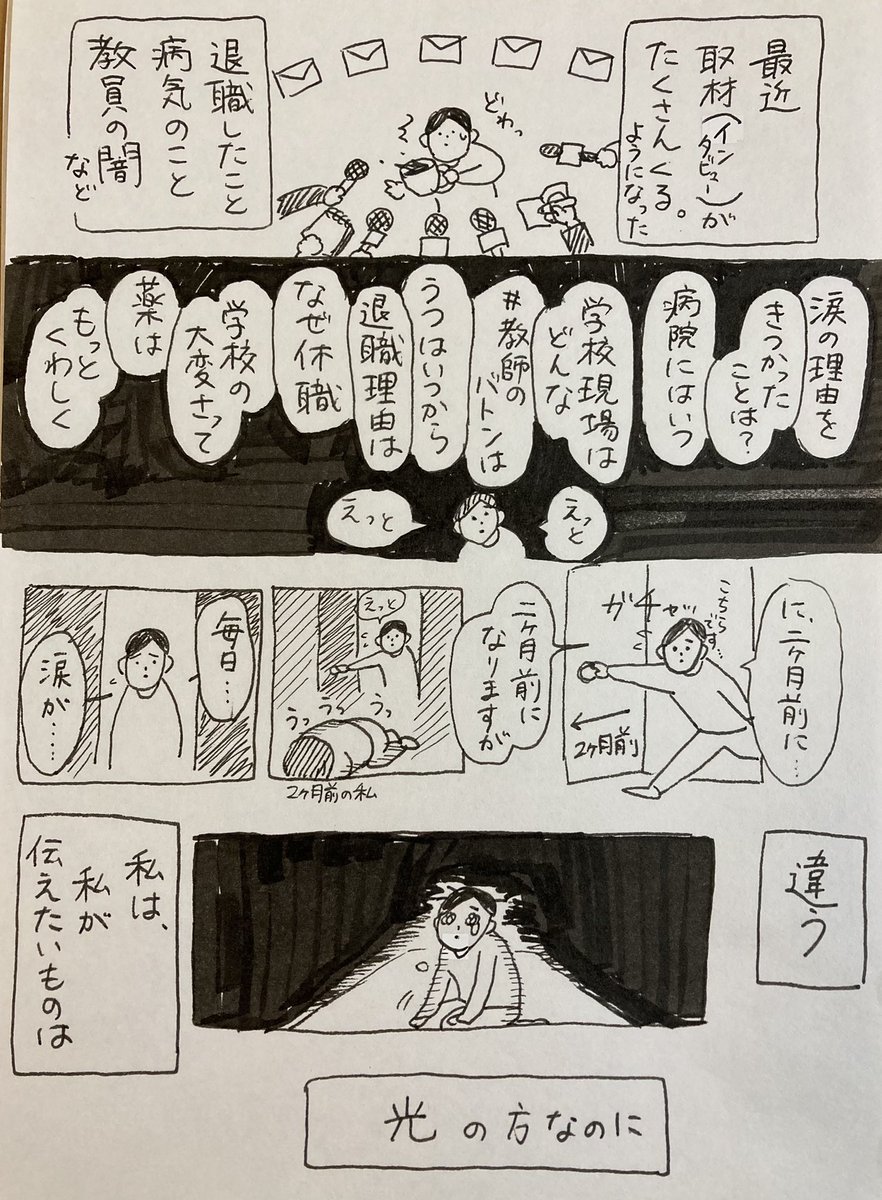 最近
取材(インタビュー)が
たくさんくる。
ようになった
どわっ
退職したこと
病気のこと
教員の闇
など
涙の理由を
きつかった
ことは?
病院にはいつ
学校現場は
どんな
#教師の
バトンは
うつはいつから
退職理由は
なぜ休職
学校の
大変さって
薬は
もっと
くわしく
えっと
えっと
に、二ヶ月前に…
こちら
です…
ガチャッ
2ヶ月前
二ヶ月前に
なりますが
えっと
うっ
うっ
うっ
2ヶ月前の私
毎日…
涙が……
違う
私は、
私が
伝えたいものは
光の方なのに